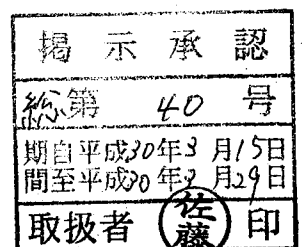 掲示承認
総第 40 号
期自平成30年3月15日
間至平成30年3月29日
取扱者 佐藤 印